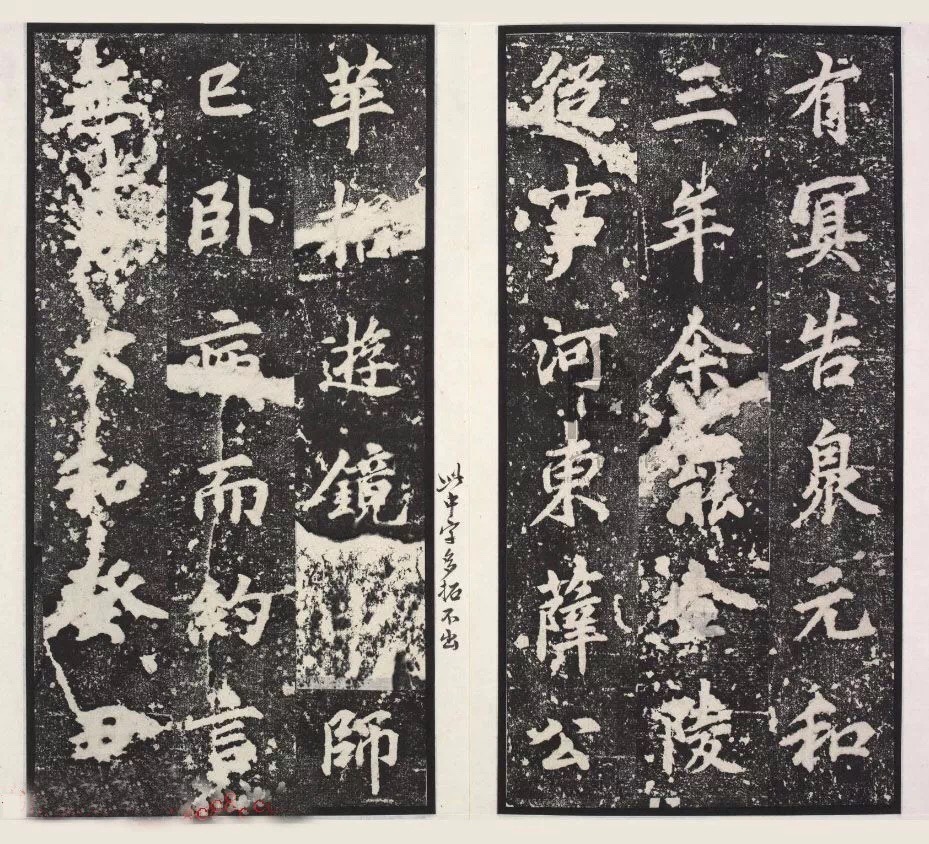 有冥告臮元和
三年余罷金陵
從事河東薛公
苹招遊鏡師
此中字多拓不出
已卧病而約言
無大和癸丑